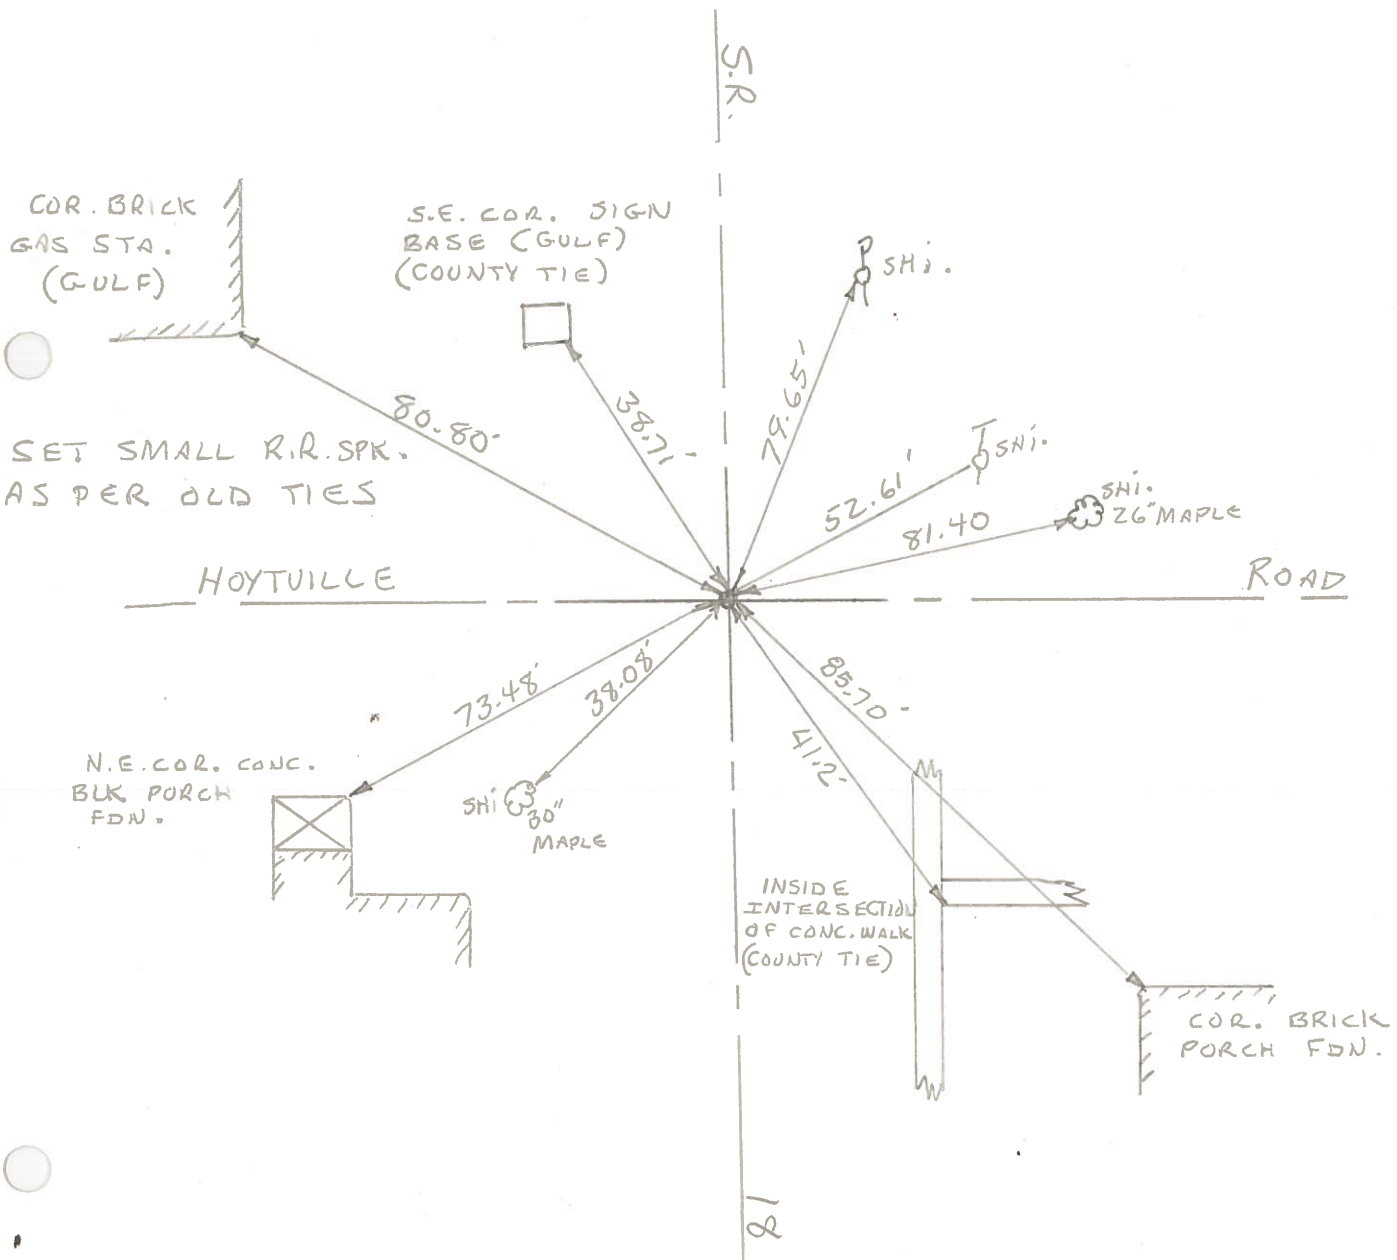 S.R.
COR. BRICK
GAS STA.
(GULF)
S.E. COR. SIGN
BASE (GULF)
(COUNTY TIE)
SHi.
80.80'
38.71'
79.65'
SET SMALL R.R. SPK.
AS PER OLD TIES
SHi.
52.61'
SHi.
26" MAPLE
81.40
HOYTUILLE
ROAD
73.48'
38.08'
85.70'
41.2'
N.E. COR. CONC.
BLK PORCH
FDN.
SHi
30"
MAPLE
INSIDE
INTERSECTION
OF CONC. WALK
(COUNTY TIE)
COR. BRICK
PORCH FDN.
18